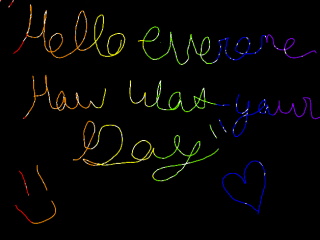 Hello everone
How was your
Day